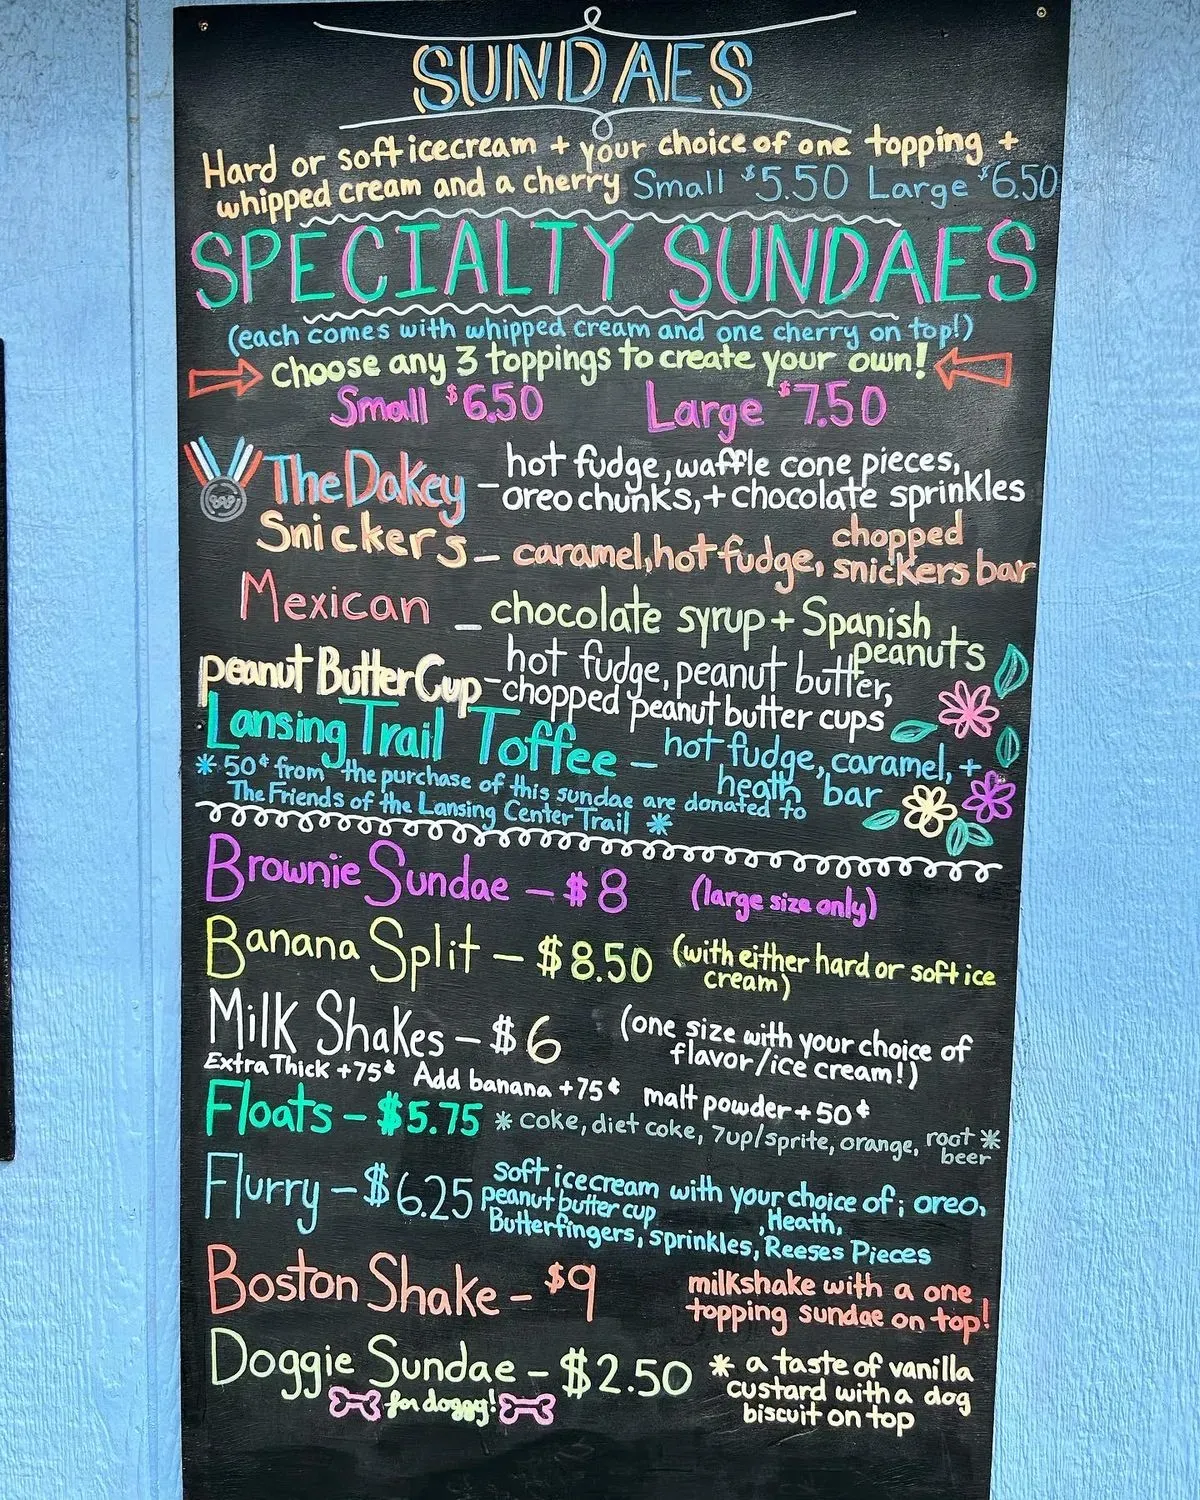 SUNDAES
Hard or soft icecream + your choice of one topping +
whipped cream and a cherry Small $5.50 Large $6.50
SPECIALTY SUNDAES
(each comes with whipped cream and one cherry on top!)
choose any 3 toppings to create your own!
Small $6.50 Large $7.50
The Dakey - hot fudge, waffle cone pieces,
oreo chunks, + chocolate sprinkles
Snickers - caramel, hot fudge, chopped
snickers bar
Mexican - chocolate syrup + Spanish
peanuts
Peanut Butter Cup - hot fudge, peanut butter,
chopped peanut butter cups
Lansing Trail Toffee - hot fudge, caramel, +
heath bar
* 50¢ from the purchase of this sundae are donated to
The Friends of the Lansing Center Trail *
Brownie Sundae - $8 (large size only)
Banana Split - $8.50 (with either hard or soft ice
cream)
Milk Shakes - $6 (one size with your choice of
flavor/ice cream!)
Extra Thick +75¢ Add banana +75¢ malt powder +50¢
Floats - $5.75 * coke, diet coke, 7up/sprite, orange, root *
beer
Flurry - $6.25 soft icecream with your choice of; oreo,
peanut butter cup, Heath,
Butterfingers, sprinkles, Reeses Pieces
Boston Shake - $9 milkshake with a one
topping sundae on top!
Doggie Sundae - $2.50 * a taste of vanilla
for doggy! custard with a dog
biscuit on top